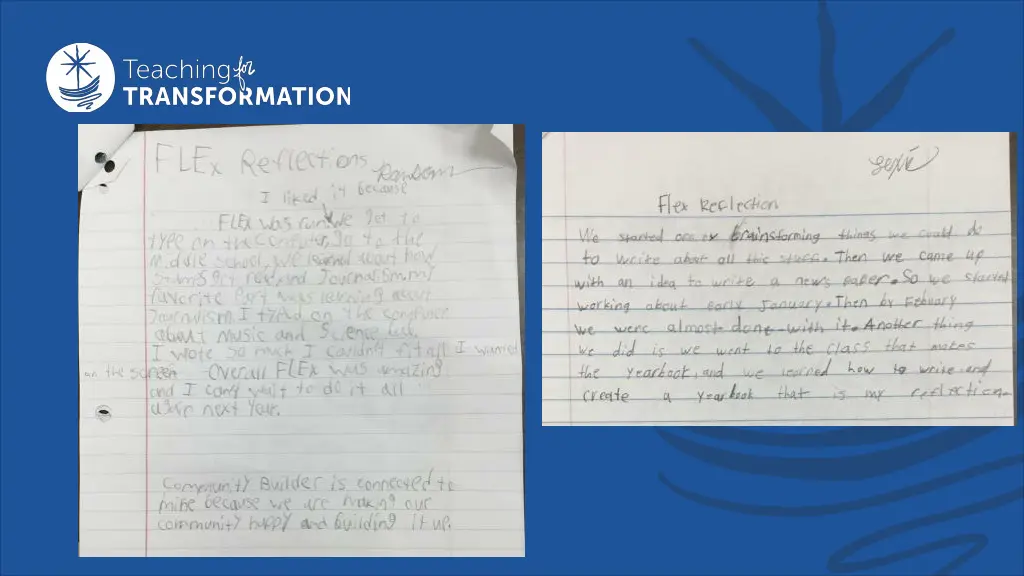 Teaching for
TRANSFORMATION
FLEx Reflections
I liked it because
FLEx was fun we got to
type on the computer, go to the
Middle school, we learned about how
and Journalism. my
favorite Part was learning about
Journalism. I typed on the computer
about music and Science
I wrote so much I couldn't fit all I wanted
on the screen. Overall FLEx was amazing
and I can't wait to do it all
again next year.
Community Builder is connected to
mine because we are making our
community happy and building it up.
Flex Reflection
We started brainstorming things we could do
to write about all this stuff. Then we came up
with an idea to write a news paper. So we started
working about early January. Then by Febuary
we were almost done with it. Another thing
we did is we went to the class that makes
the yearbook, and we learned how to write and
create a yearbook that is my reflection.